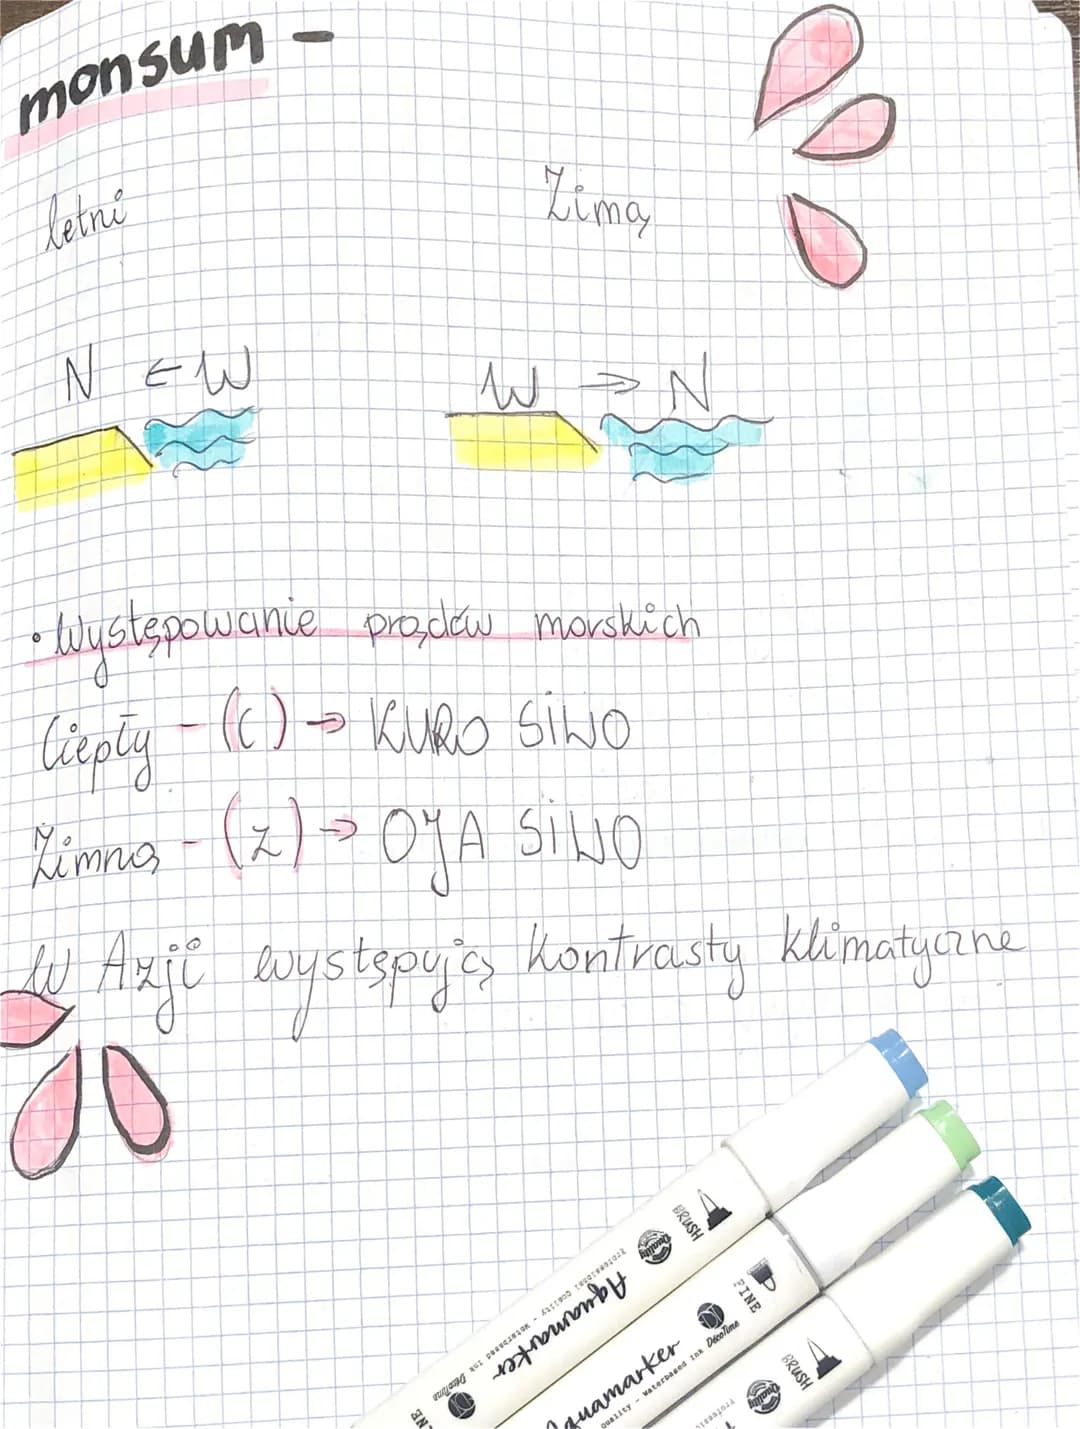 monsum -
letni Zimą
N ← W W → N
• Występowanie prądów morskich
Ciepły - (C) → KURO SIWO
Zimną - (Z) → OJA SIWO
W Azji występują kontrasty klimatyczne
BRUSH
Quality
Professional Quality - Waterbased Ink DécoTime
Aquamarker
FINE
DécoTime
Aquamarker
Quality - Waterbased Ink
BRUSH
Quality